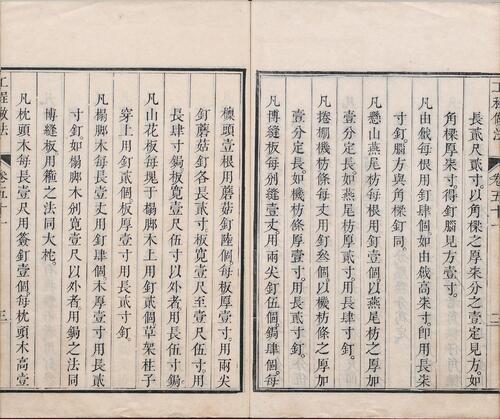 工程做法
卷五十一
二
長貳尺貳寸。以角樑之厚柒分之壹定見方。如
角樑厚柒寸。得釘腦見方壹寸。
凡由戧每根用釘肆個如由戧高柒寸。即用長柒
寸釘。腦方與角樑釘同。
凡懸山燕尾枋每根用釘壹個以燕尾枋之厚加
壹分定長。如燕尾枋厚貳寸。用長肆寸釘。
凡捲棚機枋條每根用釘叁個以機枋條之厚加
壹分定長。如機枋條厚壹寸。用長貳寸釘。
凡博縫板每別縫壹丈用兩尖釘伍個鋦肆個。每
檁頭壹根用蘑菇釘陸個。每板厚壹寸。用兩尖
釘蘑菇釘各長貳寸。板寬壹尺至壹尺伍寸。用
長肆寸鋦板寬壹尺伍寸以外者用長伍寸鋦。
凡山花板每塊于榻脚木上用釘貳個草架柱子
穿上用釘貳個板厚壹寸。用長貳寸釘。
凡榻脚木每長壹丈用釘肆個木厚壹寸用長貳
寸釘如榻脚木別寬壹尺以外者用鋦之法同
博縫板用箍之法同大柁。
凡枕頭木每長壹尺用釘壹個每枕頭木高壹
工程做法
卷五十一
三